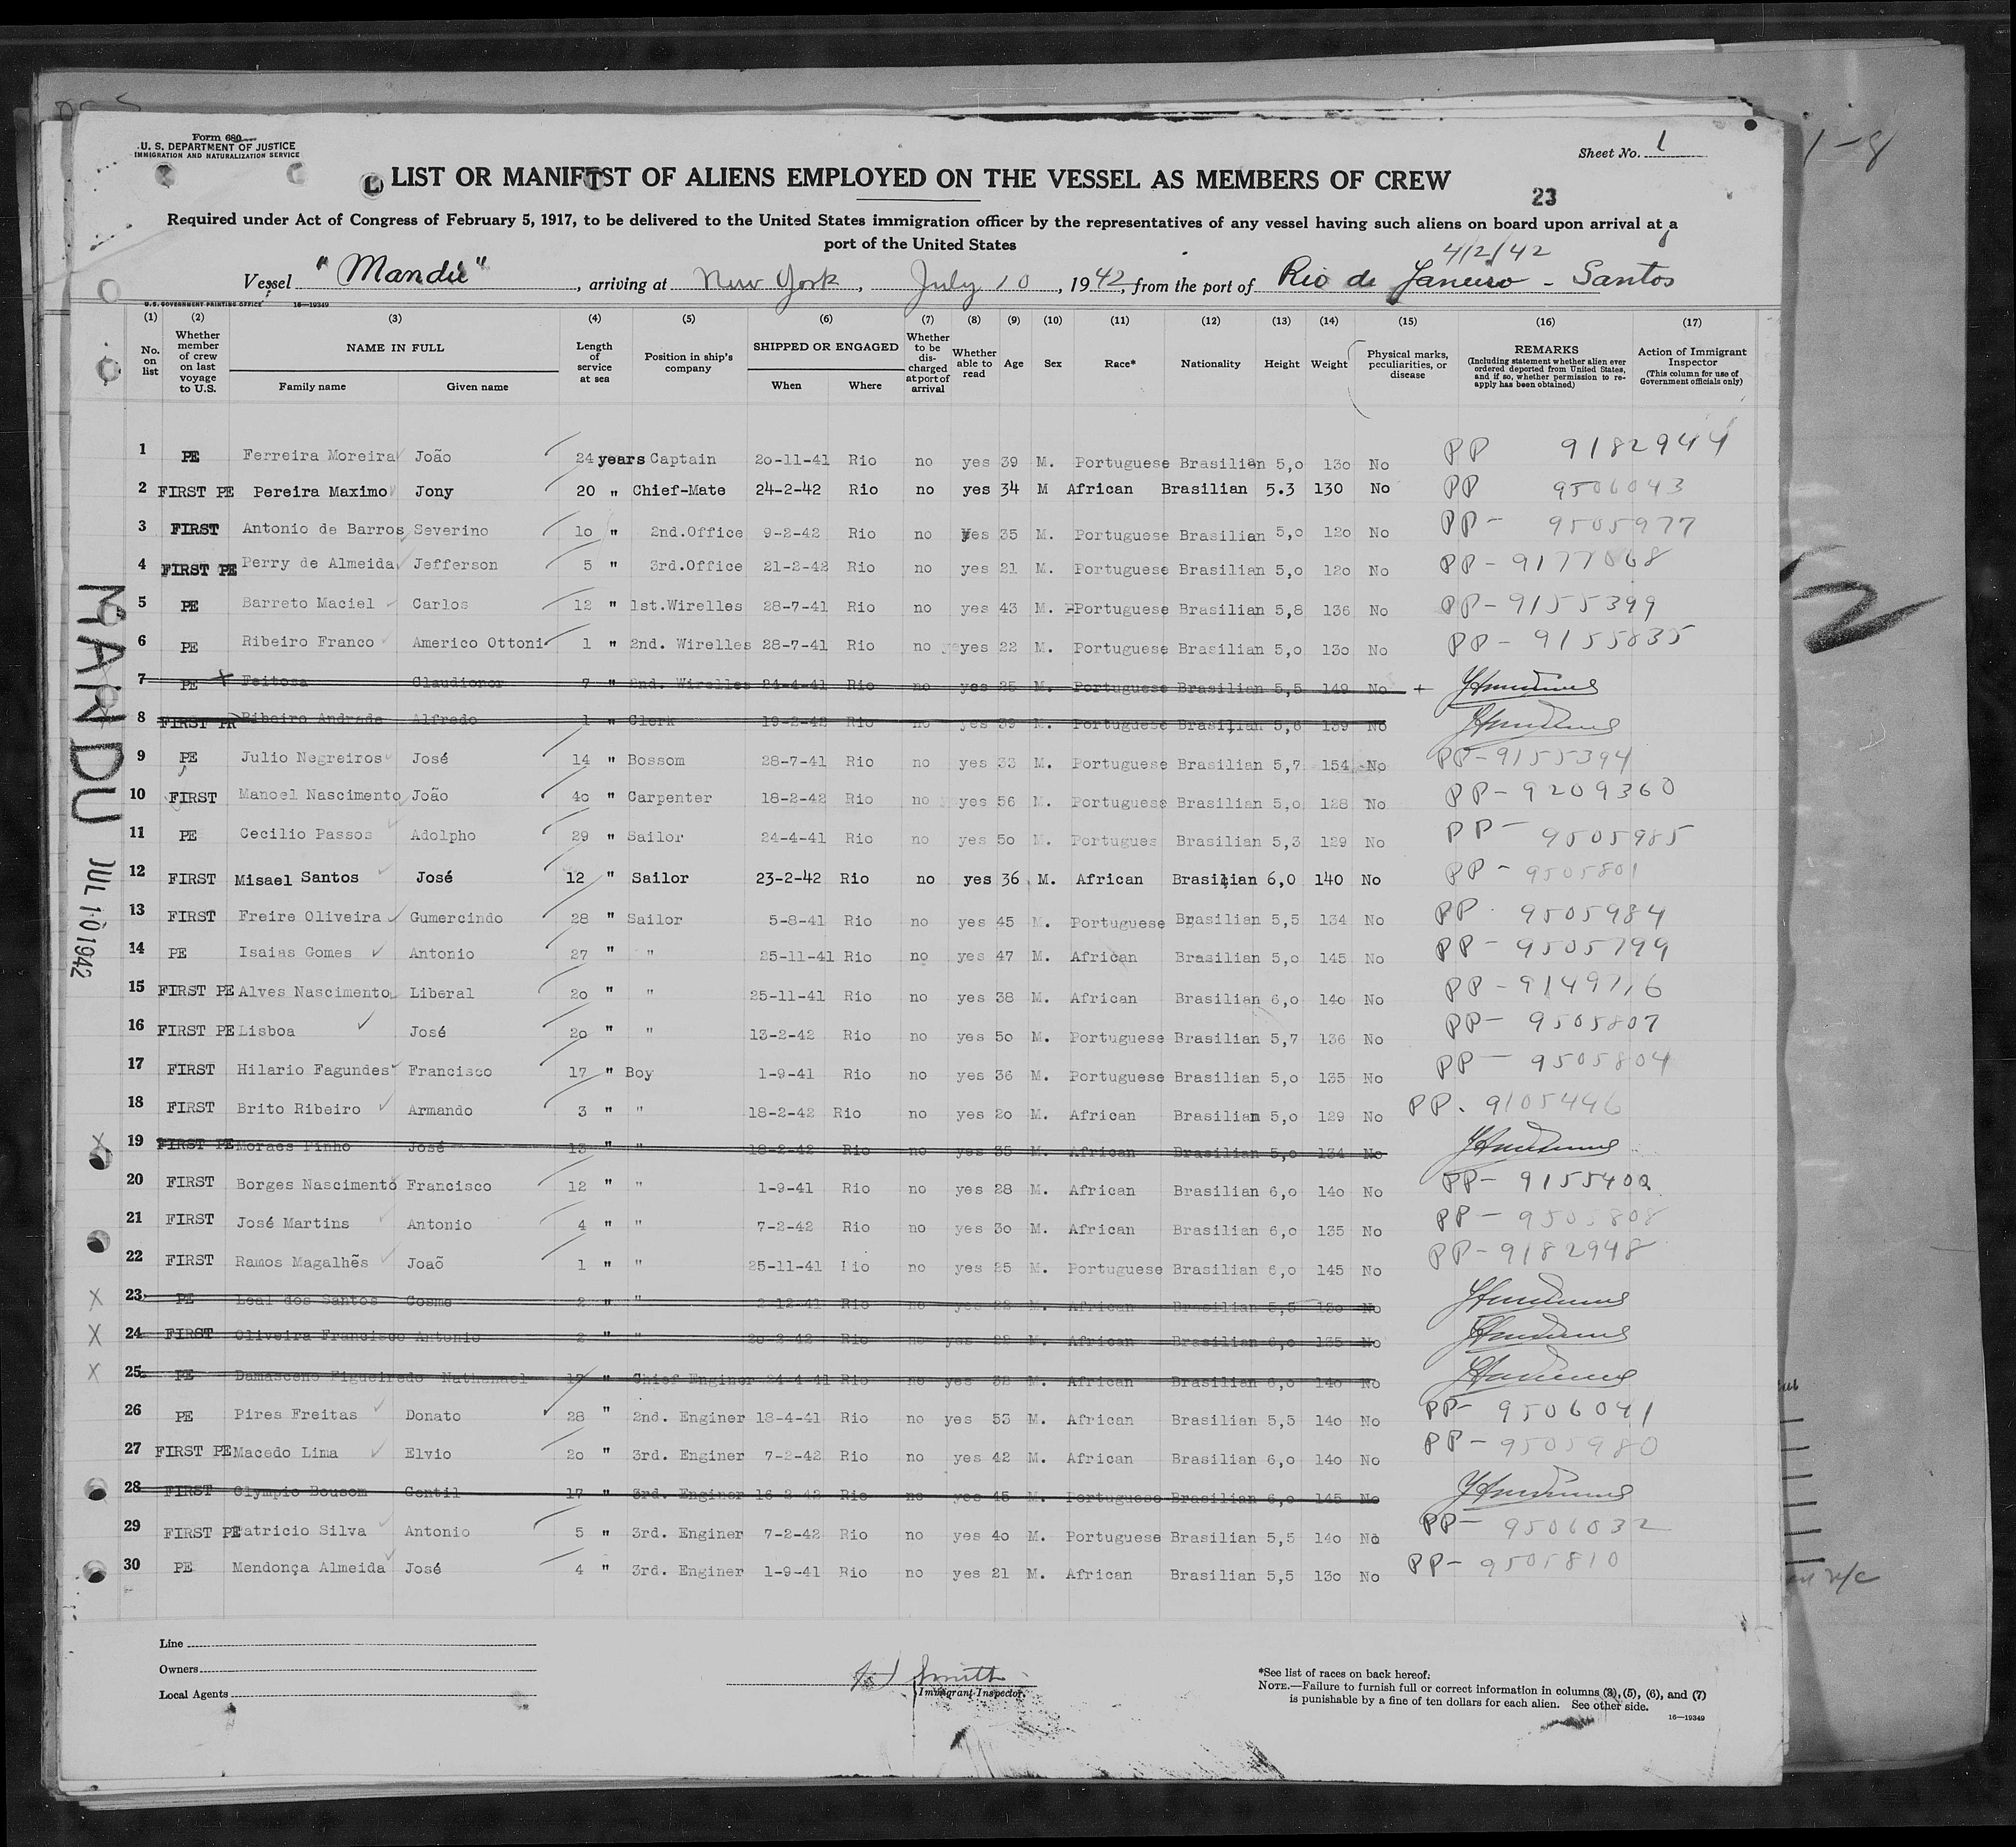 Form 680
U. S. DEPARTMENT OF JUSTICE
IMMIGRATION AND NATURALIZATION SERVICE
Sheet No. 1
LIST OR MANIFEST OF ALIENS EMPLOYED ON THE VESSEL AS MEMBERS OF CREW
23
Required under Act of Congress of February 5, 1917, to be delivered to the United States immigration officer by the representatives of any vessel having such aliens on board upon arrival at a
port of the United States
4/2/42
Vessel "Mandú", arriving at New York, July 10, 1942, from the port of Rio de Janeiro - Santos
U.S. GOVERNMENT PRINTING OFFICE 16—19349
(1) (2) (3) (4) (5) (6) (7) (8) (9) (10) (11) (12) (13) (14) (15) (16) (17)
No. on list
Whether member of crew on last voyage to U.S.
NAME IN FULL
Family name Given name
Length of service at sea
Position in ship's company
SHIPPED OR ENGAGED
When Where
Whether to be discharged at port of arrival
Whether able to read
Age Sex Race* Nationality Height Weight
Physical marks, peculiarities, or disease
REMARKS
(Including statement whether alien ever ordered deported from United States, and if so, whether permission to reapply has been obtained)
Action of Immigrant Inspector
(This column for use of Government officials only)
1 PE Ferreira Moreira João 24 years Captain 20-11-41 Rio no yes 39 M. Portuguese Brasilian 5,0 130 No PP 9182944
2 FIRST PE Pereira Maximo Jony 20 " Chief-Mate 24-2-42 Rio no yes 34 M African Brasilian 5.3 130 No PP 9506043
3 FIRST Antonio de Barros Severino 10 " 2nd.Office 9-2-42 Rio no yes 35 M. Portuguese Brasilian 5,0 120 No PP - 9505977
4 FIRST PE Perry de Almeida Jefferson 5 " 3rd.Office 21-2-42 Rio no yes 21 M. Portuguese Brasilian 5,0 120 No PP - 9177068
5 PE Barreto Maciel Carlos 12 " 1st.Wirelles 28-7-41 Rio no yes 43 M. Portuguese Brasilian 5,8 136 No PP - 9155399
6 PE Ribeiro Franco Americo Ottoni 1 " 2nd. Wirelles 28-7-41 Rio no yes 22 M. Portuguese Brasilian 5,0 130 No PP - 9155835
7 PE Feitosa Claudionor 7 " 2nd. Wirelles 24-4-41 Rio no yes 25 M. Portuguese Brasilian 5,5 149 No +
8 FIRST PR Ribeiro Andrade Alfredo 1 " Clerk 19-2-42 Rio no yes 39 M. Portuguese Brasilian 5,6 139 No
9 PE Julio Negreiros José 14 " Bossom 28-7-41 Rio no yes 33 M. Portuguese Brasilian 5,7 154 No PP - 9155394
10 FIRST Manoel Nascimento João 40 " Carpenter 18-2-42 Rio no yes 56 M. Portuguese Brasilian 5,0 128 No PP - 9209360
11 PE Cecilio Passos Adolpho 29 " Sailor 24-4-41 Rio no yes 50 M. Portugues Brasilian 5,3 129 No PP - 9505985
12 FIRST Misael Santos José 12 " Sailor 23-2-42 Rio no yes 36 M. African Brasilian 6,0 140 No PP - 9505801
13 FIRST Freire Oliveira Gumercindo 28 " Sailor 5-8-41 Rio no yes 45 M. Portuguese Brasilian 5,5 134 No PP 9505984
14 PE Isaias Gomes Antonio 27 " " 25-11-41 Rio no yes 47 M. African Brasilian 5,0 145 No PP - 9505799
15 FIRST PE Alves Nascimento Liberal 20 " " 25-11-41 Rio no yes 38 M. African Brasilian 6,0 140 No PP - 9149716
16 FIRST PE Lisboa José 20 " " 13-2-42 Rio no yes 50 M. Portuguese Brasilian 5,7 136 No PP - 9505807
17 FIRST Hilario Fagundes Francisco 17 " Boy 1-9-41 Rio no yes 36 M. Portuguese Brasilian 5,0 135 No PP - 9505804
18 FIRST Brito Ribeiro Armando 3 " " 18-2-42 Rio no yes 20 M. African Brasilian 5,0 129 No PP. 9105446
19 FIRST PE Moraes Pinho José 13 " " 18-2-42 Rio no yes 35 M. African Brasilian 5,0 134 No
20 FIRST Borges Nascimento Francisco 12 " " 1-9-41 Rio no yes 28 M. African Brasilian 6,0 140 No PP - 9155402
21 FIRST José Martins Antonio 4 " " 7-2-42 Rio no yes 30 M. African Brasilian 6,0 135 No PP - 9505808
22 FIRST Ramos Magalhẽs Joaõ 1 " " 25-11-41 Rio no yes 25 M. Portuguese Brasilian 6,0 145 No PP - 9182948
23 PE Leal dos Santos Cosme 2 " " 2-12-41 Rio no yes 22 M. African Brasilian 5,5 130 No
24 FIRST Oliveira Francisco Antonio 2 " " 20-2-42 Rio no yes 22 M. African Brasilian 6,0 135 No
25 PE Damasceno Figueiredo Nathanael 17 " Chief Enginer 24-4-41 Rio no yes 38 M. African Brasilian 6,0 140 No
26 PE Pires Freitas Donato 28 " 2nd. Enginer 18-4-41 Rio no yes 53 M. African Brasilian 5,5 140 No PP - 9506041
27 FIRST PE Macedo Lima Elvio 20 " 3rd. Enginer 7-2-42 Rio no yes 42 M. African Brasilian 6,0 140 No PP - 9505980
28 FIRST Olympio Bousom Gentil 17 " 3rd. Enginer 16-2-42 Rio no yes 45 M. Portuguese Brasilian 6,0 145 No
29 FIRST PE Patricio Silva Antonio 5 " 3rd. Enginer 7-2-42 Rio no yes 40 M. Portuguese Brasilian 5,5 140 No PP - 9506032
30 PE Mendonça Almeida José 4 " 3rd. Enginer 1-9-41 Rio no yes 21 M. African Brasilian 5,5 130 No PP - 9505810
MANDU JUL 10 1942
Line
Owners
Local Agents
Smith
Immigrant Inspector.
*See list of races on back hereof.
NOTE.—Failure to furnish full or correct information in columns (3), (5), (6), and (7)
is punishable by a fine of ten dollars for each alien. See other side.
16—19349
1-8